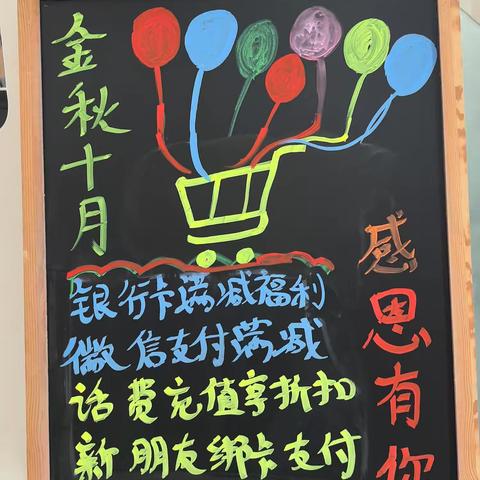 金秋十月
银行卡满减福利
微信支付满减
话费充值享折扣
新朋友绑卡支付
感恩有你